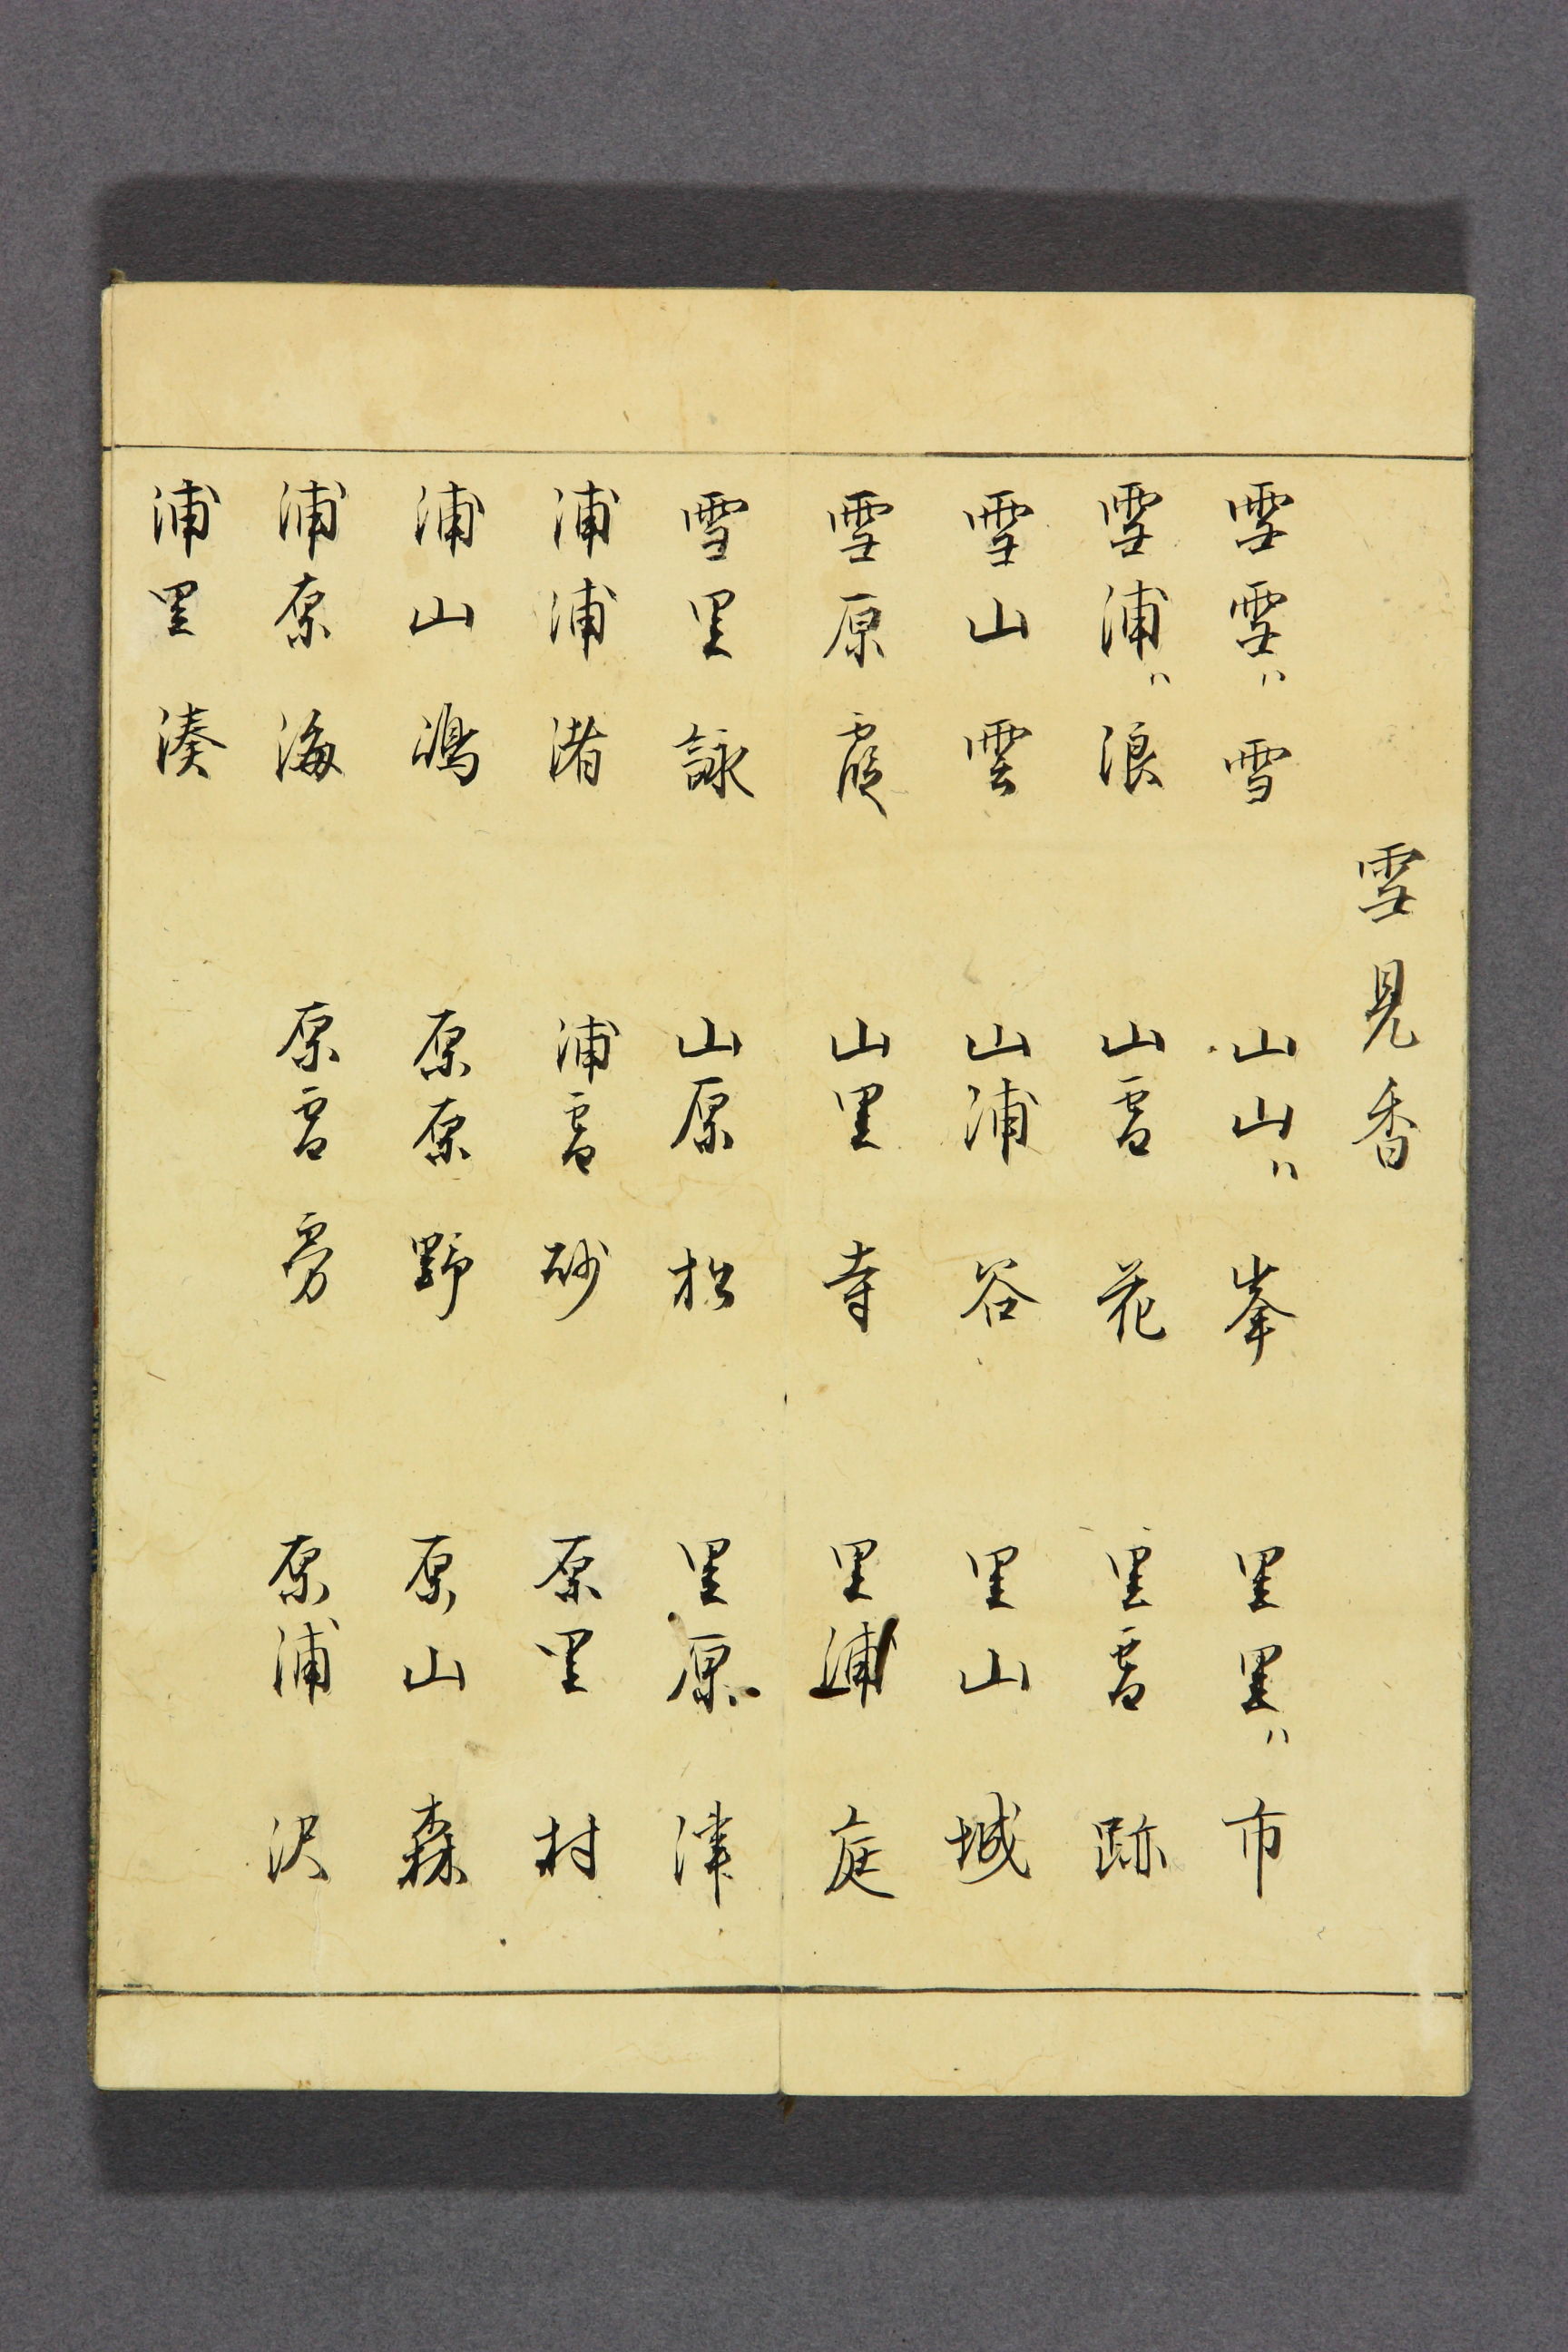 雪見香
雪雪ハ 雪 山山ハ 峯 里里ハ 市
雪浦ハ 浪 山雪 花 里雪 跡
雪山 雲 山浦 谷 里山 城
雪原 霞 山里 寺 里浦 庭
雪里 詠 山原 松 里原 津
浦浦 渚 浦雪 砂 原里 村
浦山 嶋 原原 野 原山 森
浦原 海 原雪 雰 原浦 沢
浦里 湊